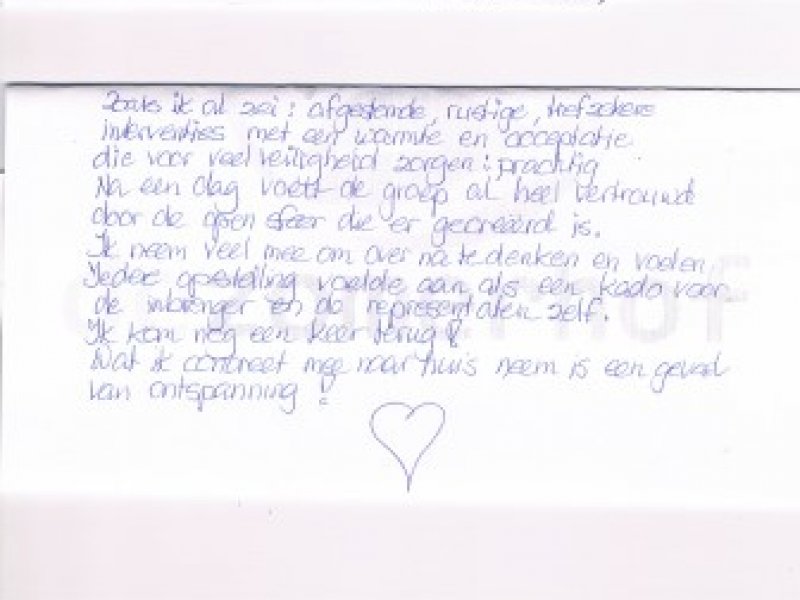 Zoals ik al zei: afgestemde, rustige, trefzekere
interventies met een warmte en acceptatie
die voor veel veiligheid zorgen: prachtig
Na een dag voelt de groep al heel vertrouwd
door de open sfeer die er gecreëerd is.
Ik neem veel mee om over na te denken en voelen
Iedere opstelling voelde aan als een kado voor
de inbrenger en de representaten zelf.
Ik kom nog een keer terug!
Wat ik concreet mee naar huis neem is een gevoel
van ontspanning!